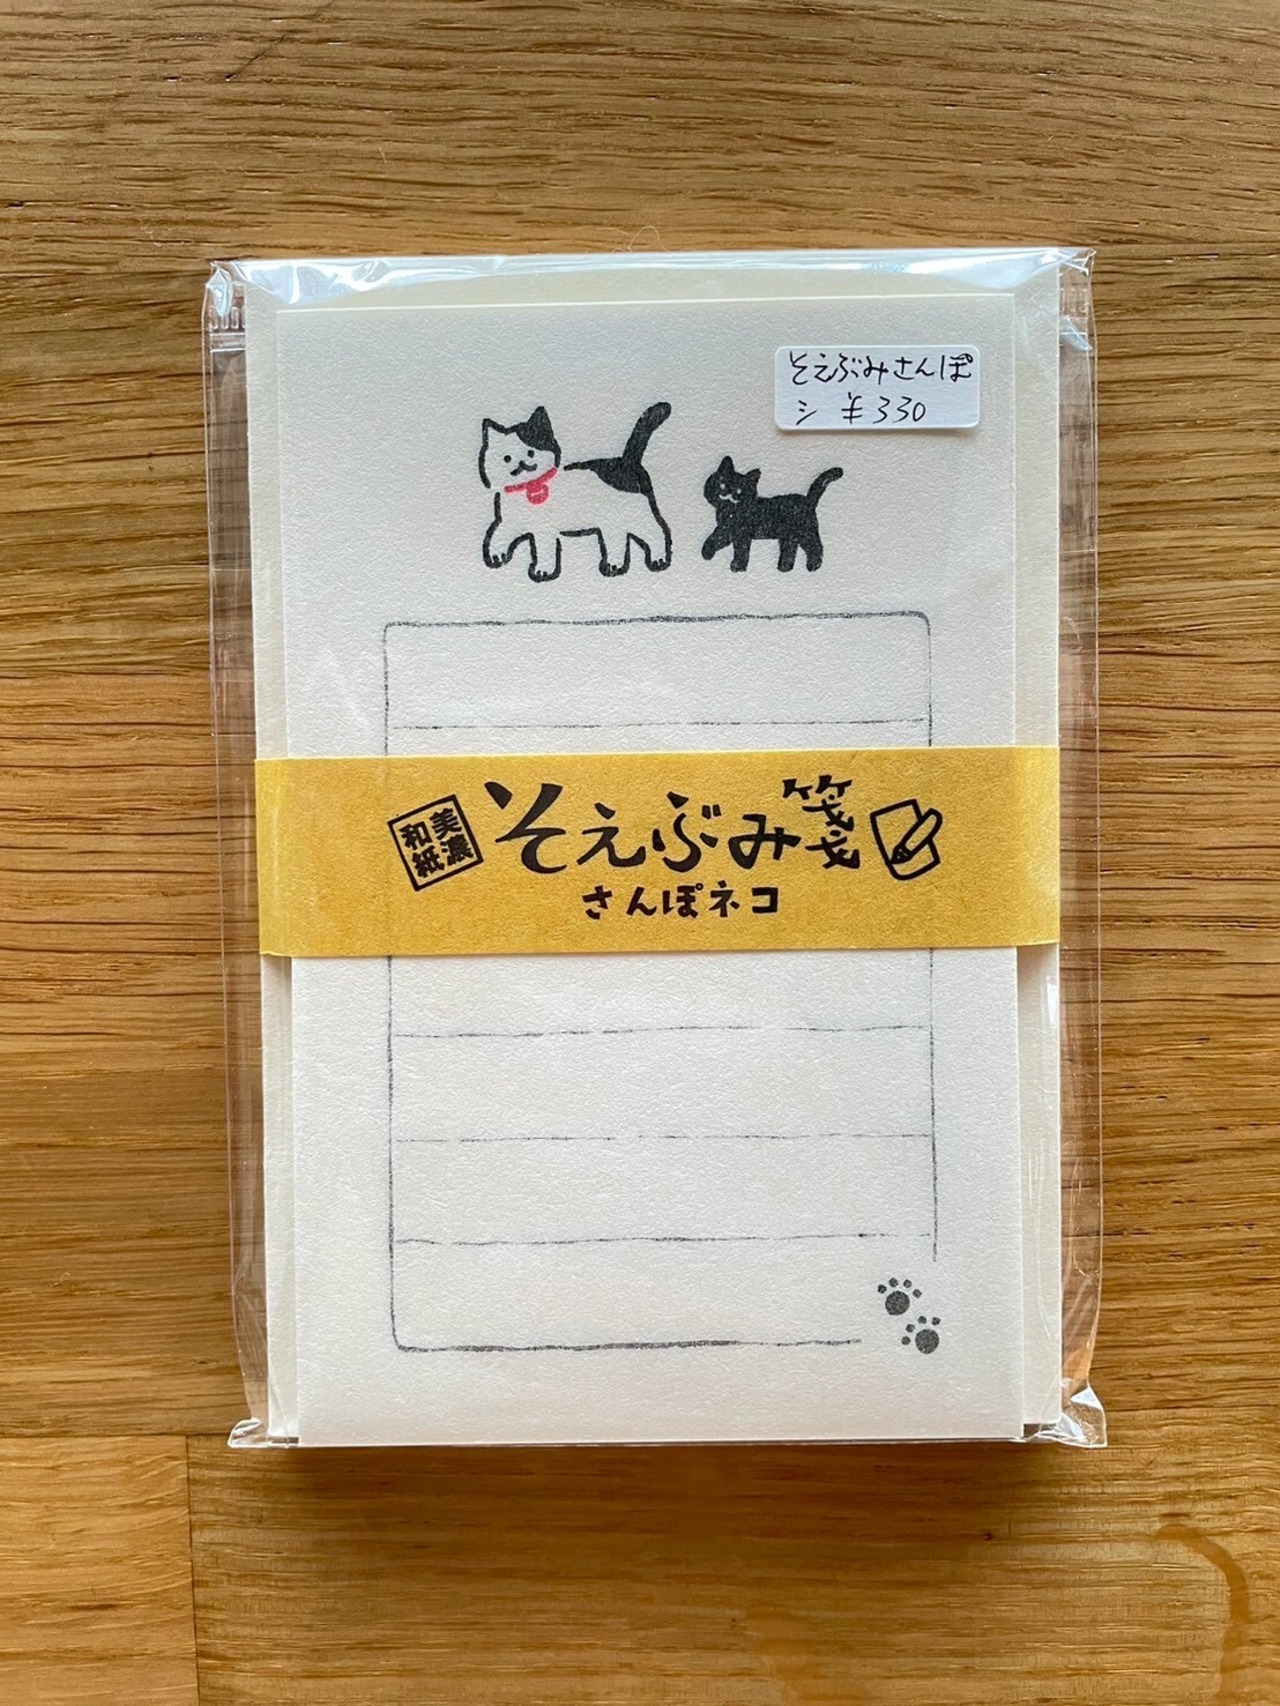 そえぶみさんぽ
シ ¥330
美濃
和紙
そえぶみ箋
さんぽネコ